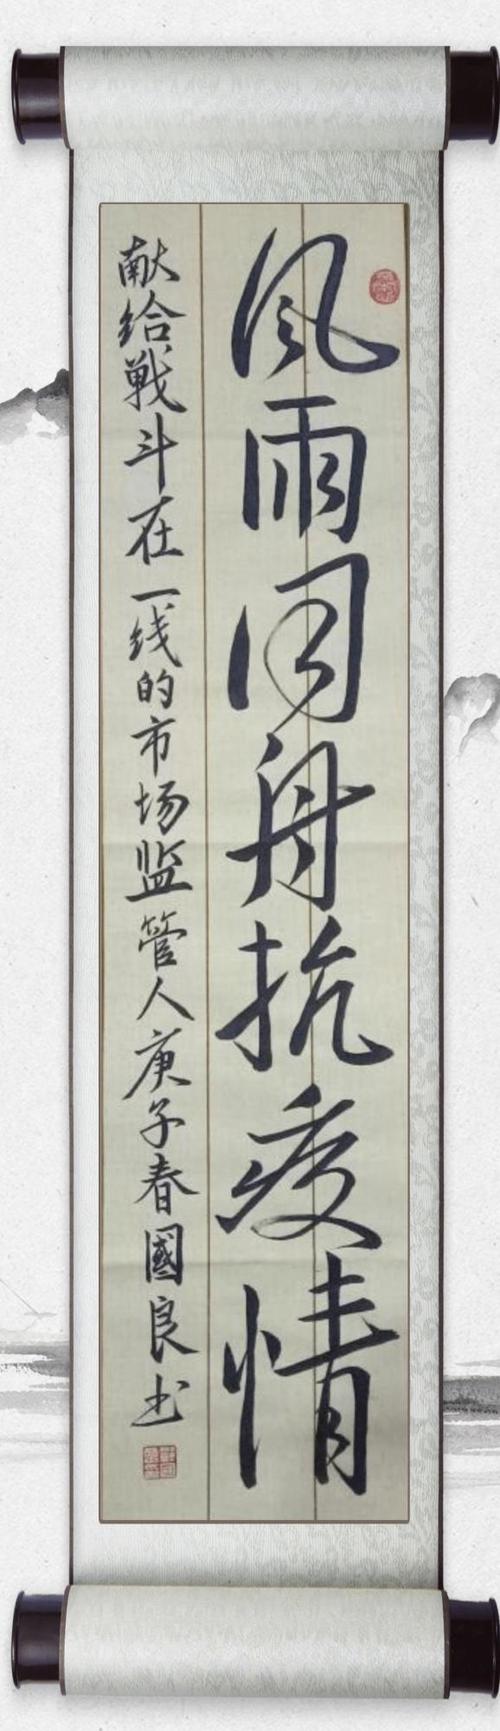 風雨同舟抗疫情
献给戰斗在一线的市场监管人庚子春國良书